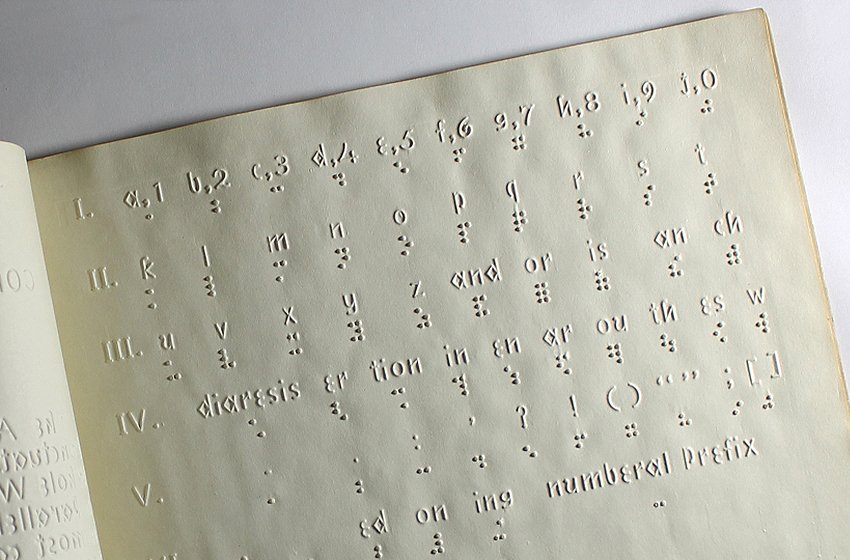 I. a,1 b,2 c,3 d,4 e,5 f,6 g,7 h,8 i,9 j,0
II. k l m n o p q r s t
III. u v x y z and or is an ch
IV. diaresis er tion in en ar ou th es w
V. , ? ! ( ) “ ” ; [ ]
ed on ing numberal prefix